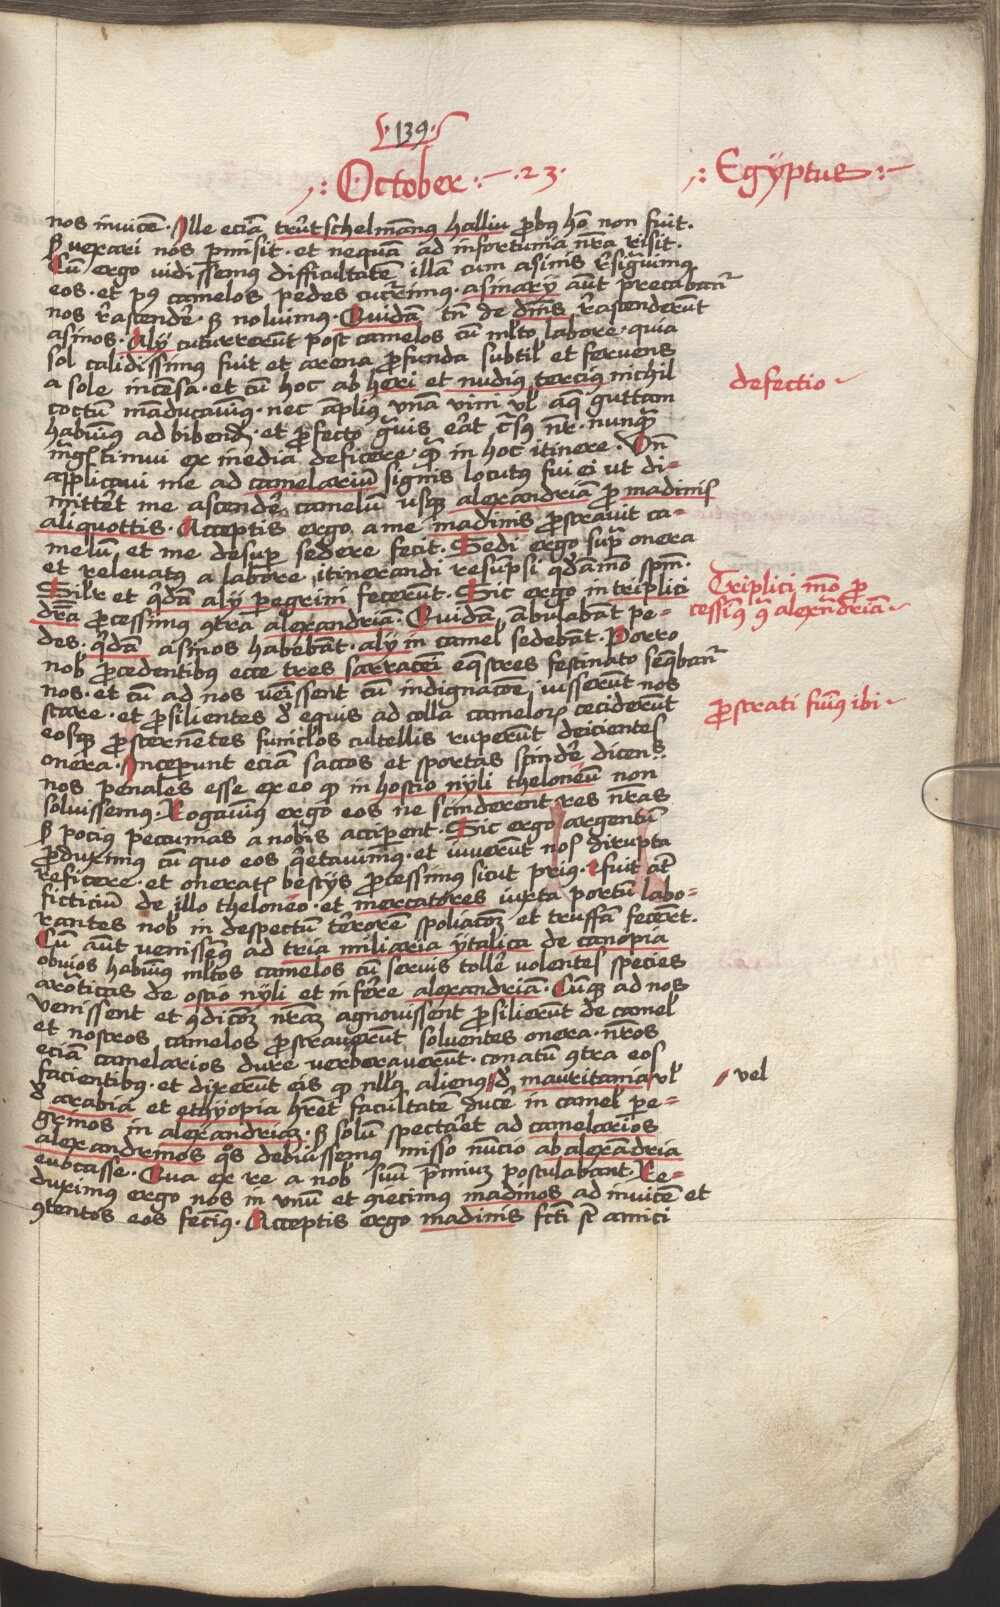 139
October 23
Egÿptus
nos inuicē. Ille eciā trūtschelmānꝰ halliu ꝓbꝰ hō non fuit.
Sꝫ vexari nos ꝑmisit. et nequā ad infortunia nr̄a risit.
Cū ergo vidissemus difficultatē illā cum asinis r̄sigͣuimꝰ
eos. et pꝰ camelos pedes cucr̄rimꝰ. asinarÿ aūt precabant᷑
nos r̄ascendē. Sꝫ noluimꝰ. Quidā tn̄ de dn̄is r̄ascenderūt
asinos. Alÿ cucurrerūt post camelos cū ml̄to labore. quia
sol calidissimꝰ fuit et arena ꝓfunda subtil̕ et feruens
a sole incensa. et cū hoc ab heri et nudiꝰ terciꝰ nichil
coctum māducauimꝰ. nec āpliꝰ vnā vini vl̕ aq̄ guttam
habuimꝰ ad bibendꝫ. et ꝓfecto gͣuis erāt cͬsꝰ nr̄. nunqͣ
mͣgͥs timui ex inedia deficere qͣ in hoc itinere. Vn̄
applicaui me ad camelariū signis locutꝰ fui ei ut di=
mitteret me ascendē camelū usqꝫ alexandriā ꝓ madinis
aliquottis. Acceptis ergo a me madinis ꝓstrauit ca=
melū et me desuꝑ sedere fecit. Sedi ergo suꝑ onera
et releuatꝰ a labore itinerandi resūpsi qͦdāmō spm̄.
Sil̕r et qͥdā alÿ ꝑegrini fecerūt. Sic ergo in triplici
dr̄ā ꝓcessimꝰ ꝯtra alexandriā. Quidā ābulabāt pe=
des. qͥdā asinos habebāt. alÿ in camel̕ sedebāt. Porro
nob̕ ꝓcedentibꝰ ecce tres sarracēi eq̄stres festinato seq̄bant᷑
nos. et cū ad nos venissent cū indignacōe iusserūt nos
stare. et ꝓsilientes d̕ equis ad colla camelorꝫ ceciderūt
eosqꝫ ꝓsternētes funiclos cultellis ruperūt deicientes
onera. Inceperunt eciā saccos et sportas scindē dicen̄.
nos penales esse ex eo qͥ in hostio nÿli theloneū non
soluissemꝰ. Rogauimꝰ ergo eos ne scinderent res nr̄as
Sꝫ pociꝰ peccunias a nobis acciperent. Sic ergo argentū
ꝓduximꝰ cū quo eos qͥetauimꝰ. et iuuerūt nos dirupta
reficere. et oneratꝭ bestÿs ꝓcessimꝰ sicut priꝰ. fuit at̄
ficticiū de illo theloneo. et mercatores iuxta portū labo=
rantes nob̕ in despectū terrorē spoliacōꝫ et truffā fecer̄t.
Cū aūt venissemꝰ ad tria miliaria ÿtalica de canopia
obuios habuimꝰ ml̄tos camelos cū seruis tollē volentes species
arōticas de ostio nÿli et inferre alexandriā. Cūqꝫ ad nos
venissent et ꝯdicōꝫ nr̄aꝫ agnouissent ꝓsilierūt de camel̕
et nostros camelos ꝓstrauerūt soluentes onera. nr̄os
eciā camelarios dure verberauerūt. conatū ꝯtra eos
facientibꝰ. et dixerūt eis qͥ nllꝰ alienꝰ d̕ mauritania vl̕
d̕ arabia et ethÿopia hr̄et facultatē ducē in camel̕ pe=
grinos in alexandriaꝫ. Sꝫ solū spectaret ad camelarios
alexandrinos qͦs debuissemꝰ misso nūcio ab alexandria
euocasse. Qua ex re a nob̕ suū p̄miuꝫ postulabant. Re=
duximꝰ ergo nos in vnū et ꝯiecimꝰ madinos ad inuicē et
ꝯtentos eos fecimꝰ. Acceptis ergo madinis fcī st̄ amici
defectio
Triplici mō ꝓ
cessimꝰ ꝯ alexandriā
ꝓstrati fuimꝰ ibi
vel